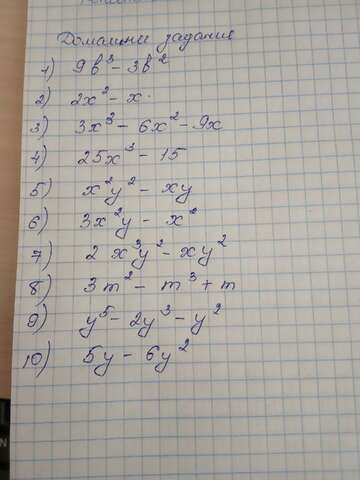 Домашнее задание
1) 9b³ - 3b²
2) 2x² - x.
3) 3x³ - 6x² - 9x
4) 25x³ - 15
5) x²y² - xy
6) 3x²y - x²
7) 2 x³y² - xy²
8) 3m² - m³ + m
9) y⁵ - 2y³ - y²
10) 5y - 6y²